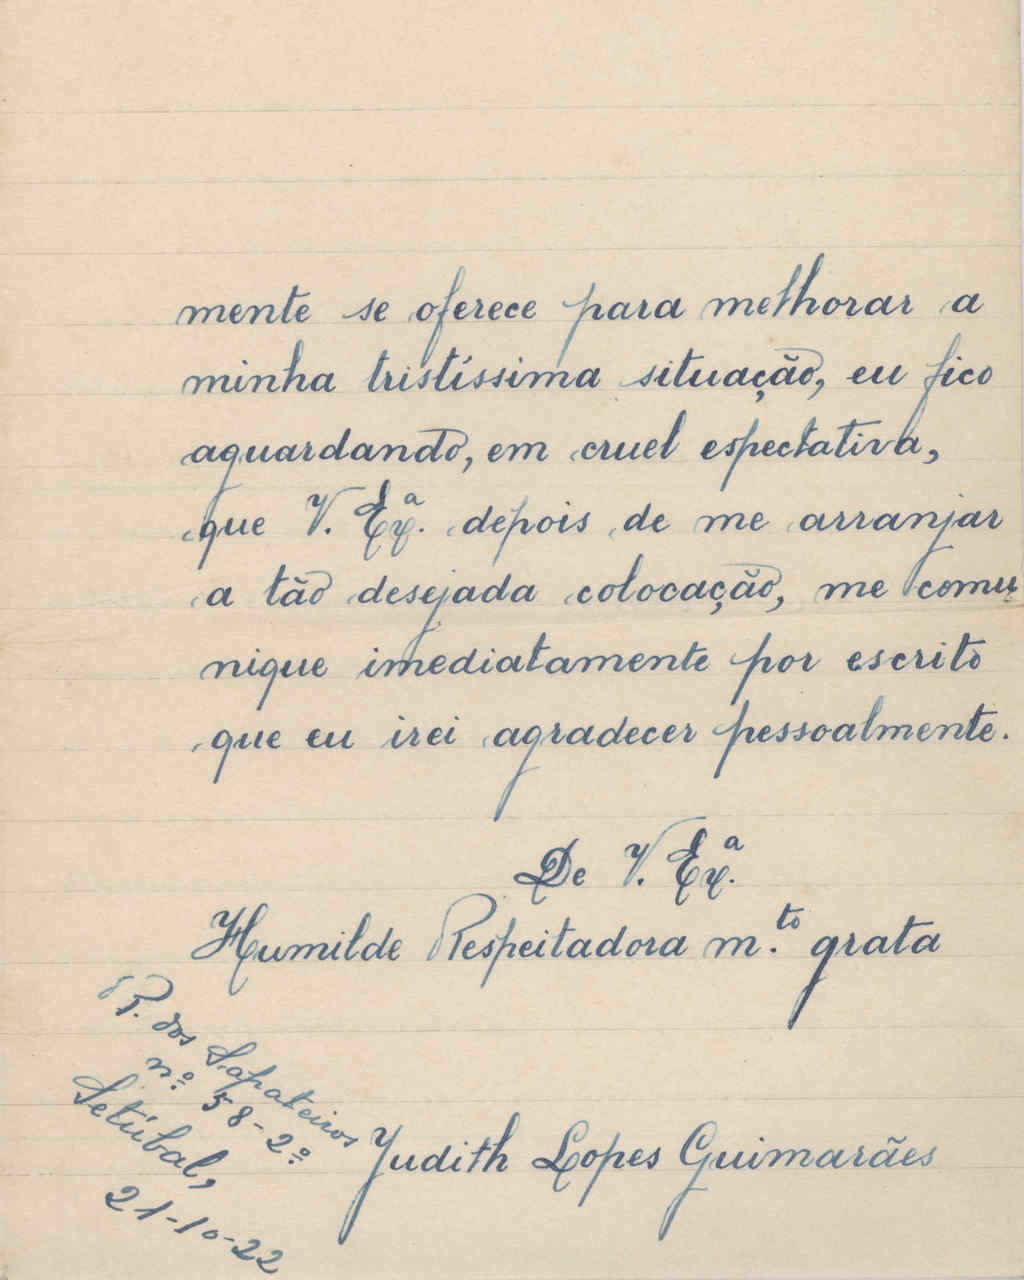 mente se oferece para melhorar a
minha tristíssima situação, eu fico
aguardando, em cruel espectativa,
que V. Exª. depois de me arranjar
a tão desejada colocação, me comu-
nique imediatamente por escrito
que eu irei agradecer pessoalmente.
De V. Exª.
Humilde Respeitadora m.to grata
R. dos Sapateiros
nº 58-2º
Setúbal,
21-10-22
Judith Lopes Guimarães